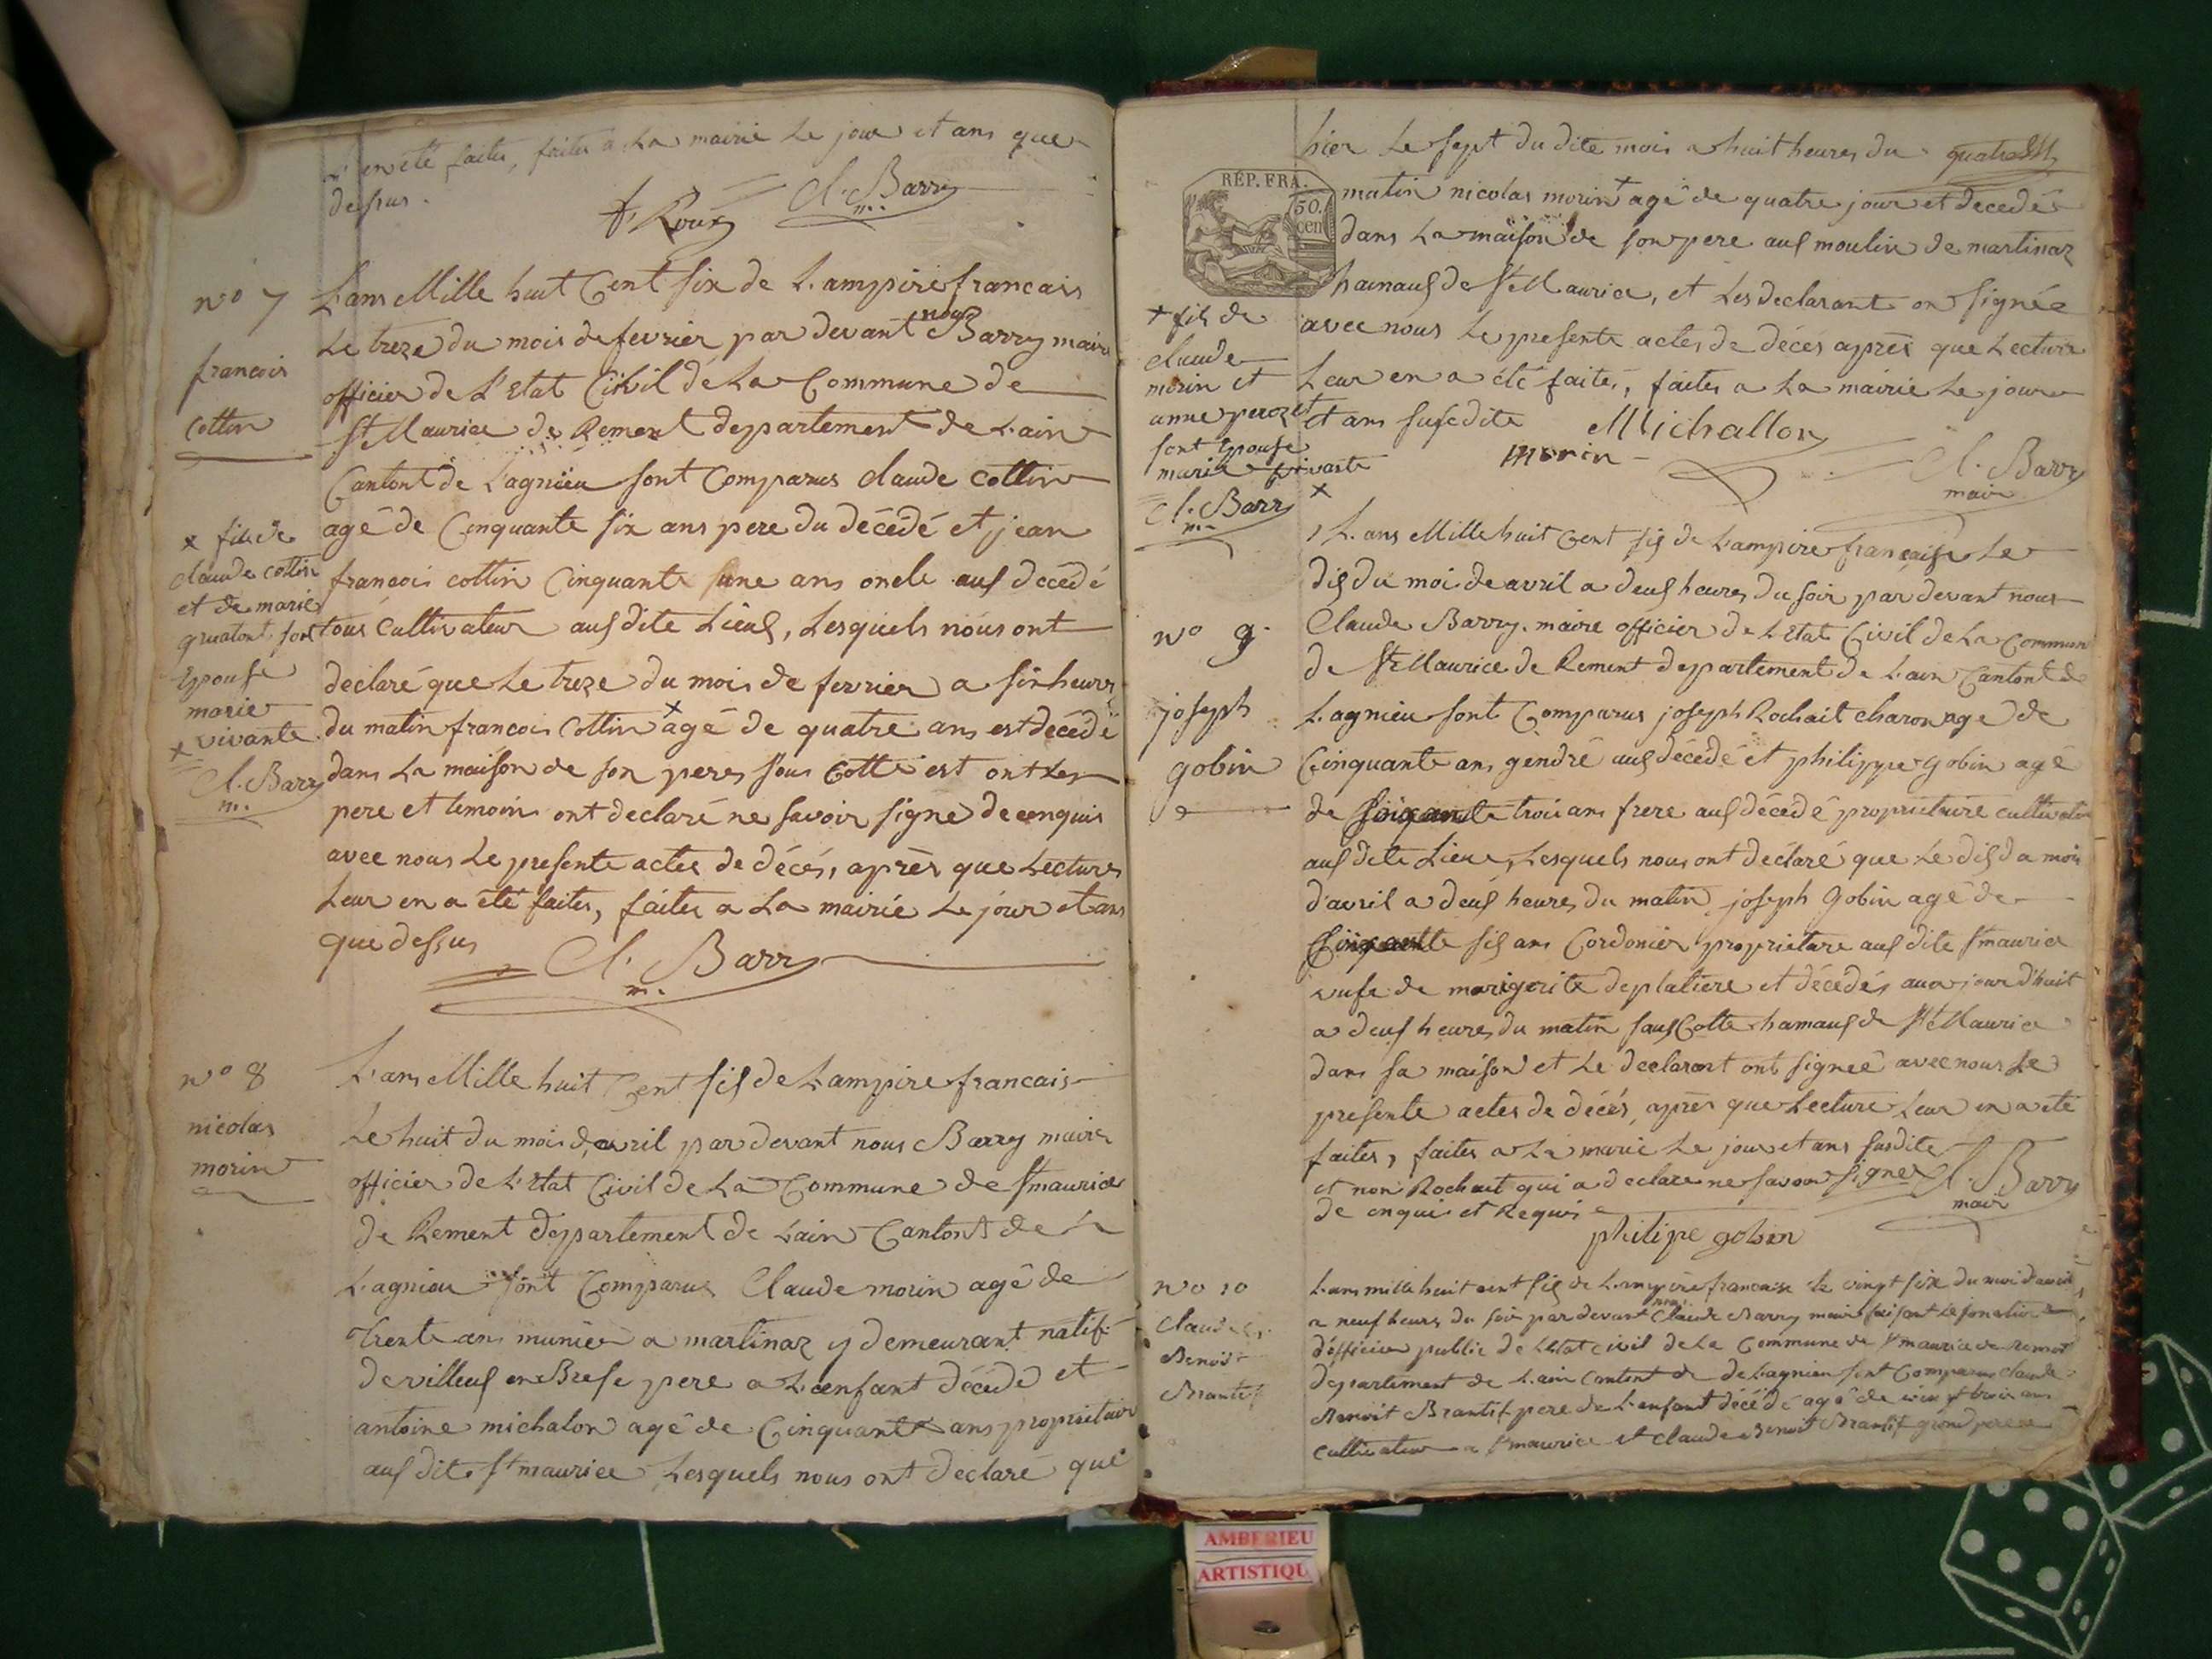 en été faites, faites a La mairie Le jour et ans que
desus.
f. Roux Cl. Barry
m.
nº 7
francois
cottin
L'ans Mille huit Cent six de L'ampire francais
Le treze du mois de fevrier par devant nous Barry maire
officier de L'Etat Civil de La Commune de
St Maurice de Rement departement de L'ain
Cantont de Lagnieu sont Comparus Claude Cottin
agé de Cinquante six ans pere du décédé et jean
francois cottin Cinquante une ans oncle aus décédé
tous Cultivateur aus dite Lieus, Lesquels nous ont
declaré que Le treze du mois de fevrier a six heures
du matin francois Cottin x agé de quatre ans est décédé
dans La maison de son peres sous Cotte est ont Les
pere et temoins ont declaré ne savoir signé de enquis
avec nous Le presente actes de décés, après que Lecture
Leur en a été faites, faites a La mairie Le jour et ans
que dessus
Cl. Barry
m.
x fils de
claude cottin
et de marie
son
Epouse
marie
x vivante
Cl. Barry
m.
nº 8
nicolas
morin
L'ans Mille huit Cent sis de L'ampire francais
Le huit du mois d'avril par devant nous Barry maire
officier de L'Etat Civil de La Commune de St maurice
de Rement departement de Lain Cantont de
Lagnieu sont Comparus Claude morin agé de
Trente ans munier a martinaz y demeurant natif
de villeus en Brese pere a L'enfant décédé et
antoine michalon agé de Cinquante ans proprietaire
aus dite St maurice Lesquels nous ont declaré que
hier Le sept du dite mois a huit heures du quatre
RÉP. FRA.
50.
cen
matin nicolas morin + agé de quatre jour et decedé
dans La maison de son pere aus moulin de martinaz
hamaus de St Maurice, et Les declarant on signée
avec nous Le presente actes de décés après que Lecture
Leur en a été faites, faites a La mairie Le jour
et ans susdite Michallon
morin Cl. Barry
maire
+ fils de
claude
morin et
anne perozet
sont Epouse
marie vivante
Cl. Barry x
m.
nº 9.
joseph
gobin
L'ans Mille huit Cent sis de L'ampire francaise Le
dis du moi de avril a deus heures du soir par devant nous
Claude Barry maire officier de L'Etat Civil de La Commun
de St Maurice de Rement departement de L'ain Cantont de
Lagnieu sont Comparus joseph Rochait charon age de
Cinquante ans gendre aus décédé et philippe Gobin agé
de soixante trois ans frere aus décédé propriétaire cultivateur
aus dite Lieus, Lesquels nous ont declaré que Le dis du mois
d'avril a deus heures du matin joseph Gobin agé de
sis ans Cordonier proprietare aus dite St maurice
vufe de marigerite deplatiere et décédés aua jour d'huit
a deus heures du matin sous Cotte hamaus de St Maurice
dans sa maison et Le declarant ont signeé avec nous Le
presente actes de décés, après que Lecture Leur en a été
faites, faites a La marie Le jour et ans susdite
et non Rochait qui a declare ne savoir signer Cl. Barry
de enquis et Requis maire
philipe gobin
nº 10
claude
Benoit
Brantif
L'ans mille huit cent sis de L'ampire francaise le vingt six du moi d'avril
a neuf heures du soir par devant nous Claude Barry maire faisant Le fonction
d'officier public de L'Etat civil de La Commune de St maurice de remont
departement de L'ain Contont de de Lagnieu sont Comparus claude
Benoit Brantif pere de L'enfant décédé agé de trois ans
cultivateur a St maurice et claude Benoit Brantif grand pere
AMBERIEU
ARTISTIQU